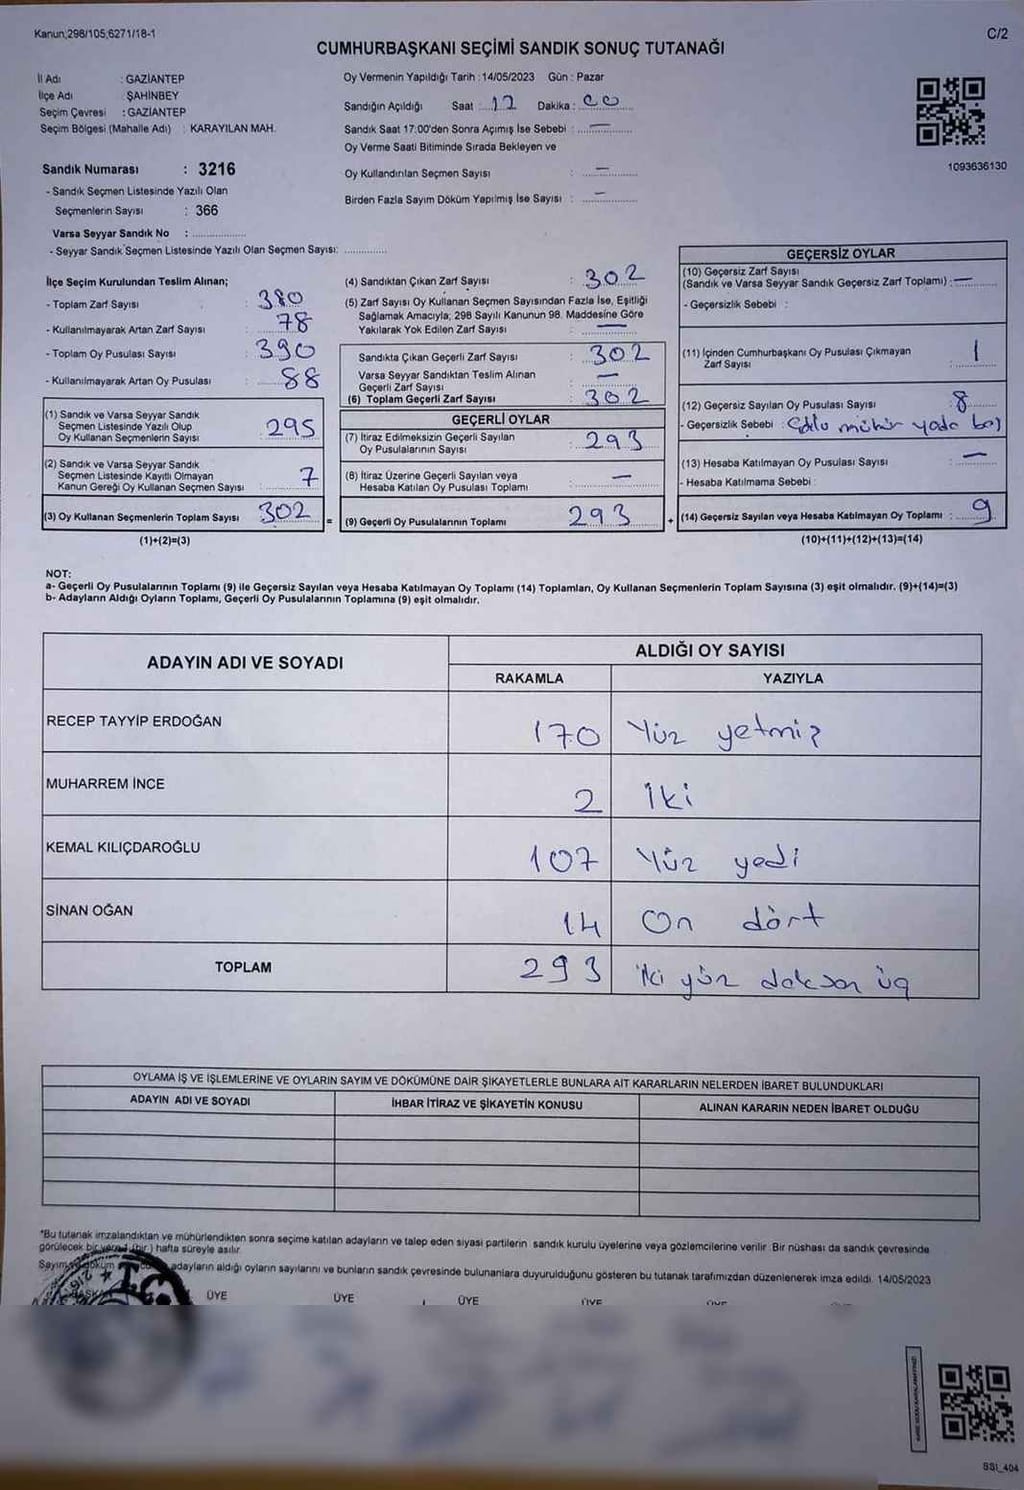 Kanun;298/105;6271/18-1
C/2
CUMHURBAŞKANI SEÇİMİ SANDIK SONUÇ TUTANAĞI
İl Adı : GAZİANTEP
İlçe Adı : ŞAHİNBEY
Seçim Çevresi : GAZİANTEP
Seçim Bölgesi (Mahalle Adı) : KARAYILAN MAH.
Oy Vermenin Yapıldığı Tarih : 14/05/2023 Gün : Pazar
Sandığın Açıldığı Saat : 17 Dakika : 00
Sandık Saat 17:00'den Sonra Açımış İse Sebebi : —
Oy Verme Saati Bitiminde Sırada Bekleyen ve
Oy Kullandırılan Seçmen Sayısı : —
Birden Fazla Sayım Döküm Yapılmış İse Sayısı : —
1093636130
Sandık Numarası : 3216
- Sandık Seçmen Listesinde Yazılı Olan
Seçmenlerin Sayısı : 366
Varsa Seyyar Sandık No :
- Seyyar Sandık Seçmen Listesinde Yazılı Olan Seçmen Sayısı:
İlçe Seçim Kurulundan Teslim Alınan;
- Toplam Zarf Sayısı : 380
- Kullanılmayarak Artan Zarf Sayısı : 78
- Toplam Oy Pusulası Sayısı : 390
- Kullanılmayarak Artan Oy Pusulası : 88
(1) Sandık ve Varsa Seyyar Sandık
Seçmen Listesinde Yazılı Olup
Oy Kullanan Seçmenlerin Sayısı : 295
(2) Sandık ve Varsa Seyyar Sandık
Seçmen Listesinde Kayıtlı Olmayan
Kanun Gereği Oy Kullanan Seçmen Sayısı : 7
(3) Oy Kullanan Seçmenlerin Toplam Sayısı : 302 =
(1)+(2)=(3)
(4) Sandıktan Çıkan Zarf Sayısı : 302
(5) Zarf Sayısı Oy Kullanan Seçmen Sayısından Fazla İse, Eşitliği
Sağlamak Amacıyla; 298 Sayılı Kanunun 98. Maddesine Göre
Yakılarak Yok Edilen Zarf Sayısı : —
Sandıkta Çıkan Geçerli Zarf Sayısı : 302
Varsa Seyyar Sandıktan Teslim Alınan
Geçerli Zarf Sayısı : —
(6) Toplam Geçerli Zarf Sayısı : 302
GEÇERLİ OYLAR
(7) İtiraz Edilmeksizin Geçerli Sayılan
Oy Pusulalarının Sayısı : 293
(8) İtiraz Üzerine Geçerli Sayılan veya
Hesaba Katılan Oy Pusulası Toplamı : —
(9) Geçerli Oy Pusulalarının Toplamı : 293 +
GEÇERSİZ OYLAR
(10) Geçersiz Zarf Sayısı
(Sandık ve Varsa Seyyar Sandık Geçersiz Zarf Toplamı) : —
- Geçersizlik Sebebi :
(11) İçinden Cumhurbaşkanı Oy Pusulası Çıkmayan
Zarf Sayısı : 1
(12) Geçersiz Sayılan Oy Pusulası Sayısı : 8
- Geçersizlik Sebebi : mühür yada boş
(13) Hesaba Katılmayan Oy Pusulası Sayısı : —
- Hesaba Katılmama Sebebi :
(14) Geçersiz Sayılan veya Hesaba Katılmayan Oy Toplamı : 9
(10)+(11)+(12)+(13)=(14)
NOT:
a- Geçerli Oy Pusulalarının Toplamı (9) ile Geçersiz Sayılan veya Hesaba Katılmayan Oy Toplamı (14) Toplamları, Oy Kullanan Seçmenlerin Toplam Sayısına (3) eşit olmalıdır. (9)+(14)=(3)
b- Adayların Aldığı Oyların Toplamı, Geçerli Oy Pusulalarının Toplamına (9) eşit olmalıdır.
ADAYIN ADI VE SOYADI
ALDIĞI OY SAYISI
RAKAMLA YAZIYLA
RECEP TAYYİP ERDOĞAN 170 Yüz yetmiş
MUHARREM İNCE 2 İki
KEMAL KILIÇDAROĞLU 107 Yüz yedi
SİNAN OĞAN 14 On dört
TOPLAM 293 iki yüz doksan üç
OYLAMA İŞ VE İŞLEMLERİNE VE OYLARIN SAYIM VE DÖKÜMÜNE DAİR ŞİKAYETLERLE BUNLARA AİT KARARLARIN NELERDEN İBARET BULUNDUKLARI
ADAYIN ADI VE SOYADI İHBAR İTİRAZ VE ŞİKAYETİN KONUSU ALINAN KARARIN NEDEN İBARET OLDUĞU
"Bu tutanak imzalandıktan ve mühürlendikten sonra seçime katılan adayların ve talep eden siyasi partilerin sandık kurulu üyelerine veya gözlemcilerine verilir. Bir nüshası da sandık çevresinde
görülecek bir yere 1 (bir) hafta süreyle asılır.
Sayım döküm adayların aldığı oyların sayılarını ve bunların sandık çevresinde bulunanlara duyurulduğunu gösteren bu tutanak tarafımızdan düzenlenerek imza edildi. 14/05/2023
BAŞKAN ÜYE ÜYE ÜYE ÜYE ÜYE ÜYE
SSI_404